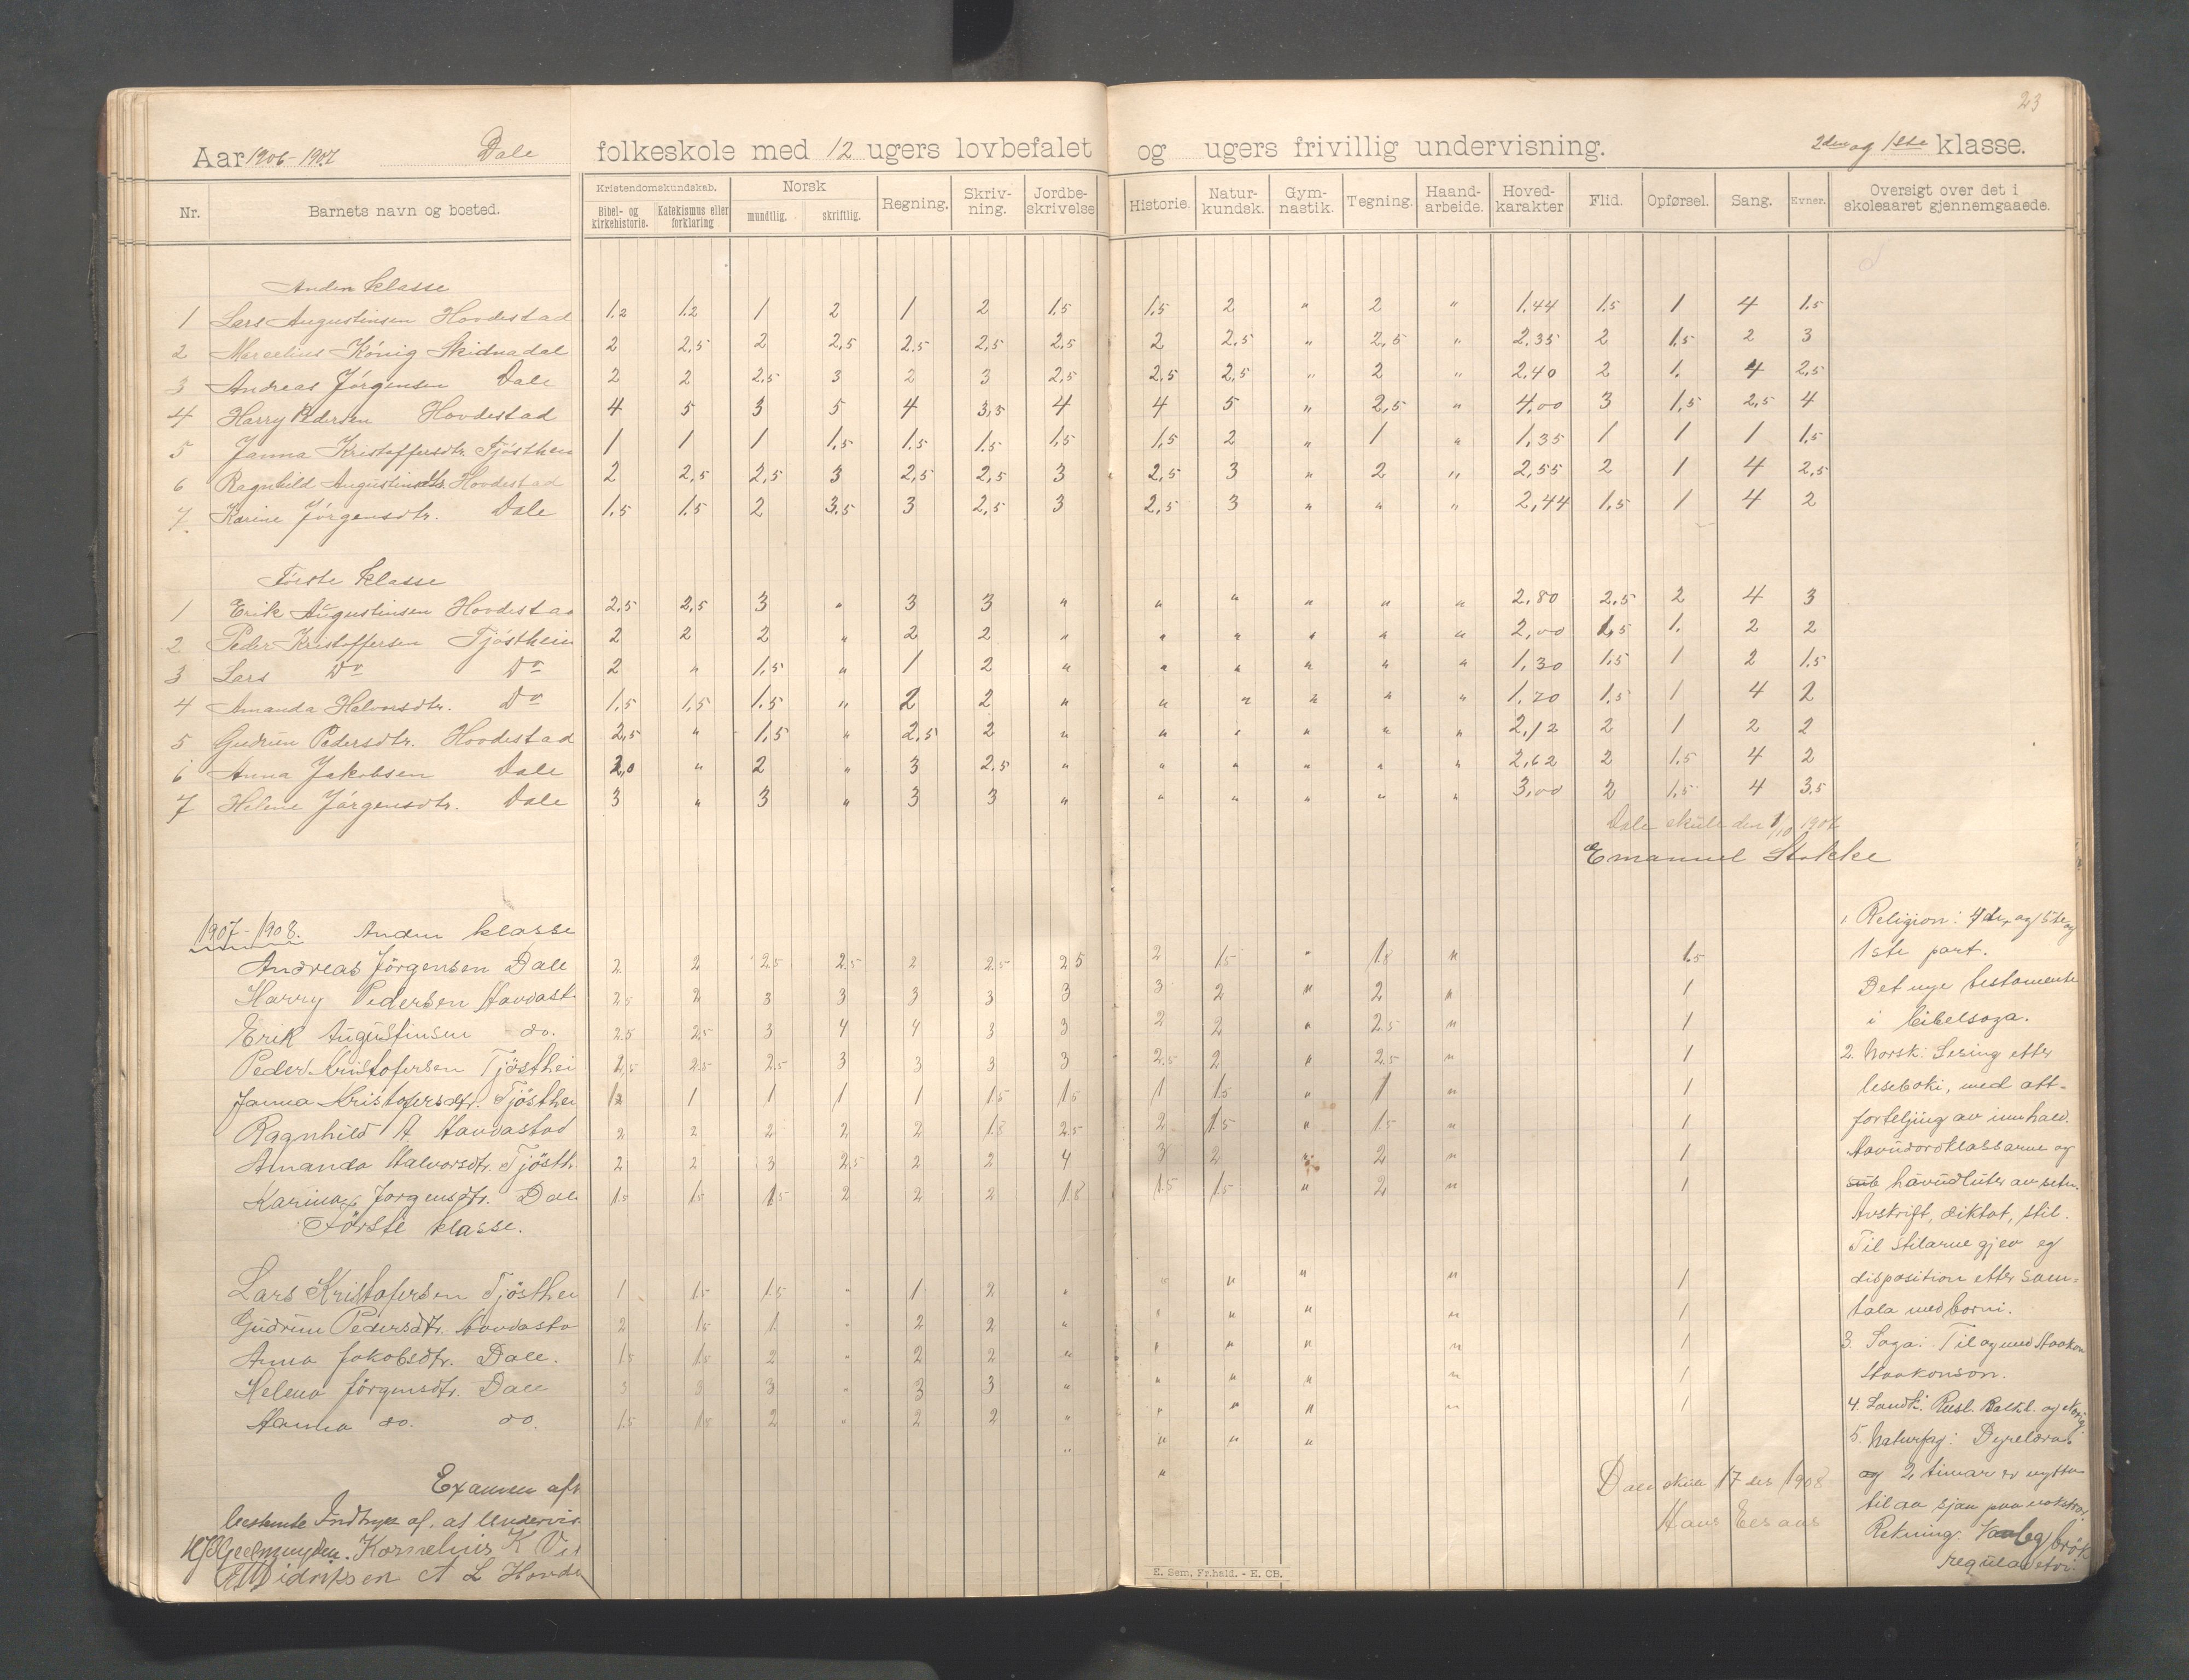 23
Aar 1906-1907 Dale folkeskole med 12 ugers lovbefalet og ugers frivillig undervisning. 2den og 1ste klasse.
Nr. Barnets navn og bosted. Kristendomskundskab. Bibel- og kirkehistorie. Katekismus eller forklaring Norsk mundtlig. skriftlig. Regning. Skriv-ning. Jordbe-skrivelse Historie. Natur-kundsk. Gym-nastik. Tegning. Haand-arbeide. Hoved-karakter Flid. Opførsel. Sang. Evner. Oversigt over det i skoleaaret gjennemgaaede.
Anden klasse
1 Lars Augustinsen Hovdestad 1.2 1.2 1 2 1 2 1.5 1.5 2 " 2 " 1.44 1.5 1 4 1.5
2 Marcelius König Skidnadal 2 2,5 2 2,5 2.5 2,5 2,5 2 2,5 " 2,5 " 2,35 2 1,5 2 3
3 Andreas Jörgensen Dale 2 2 2,5 3 2 3 2,5 2,5 2,5 " 2 " 2.40 2 1. 4 2,5
4 Harry Pedersen Hovdestad 4 5 3 5 4 3,5 4 4 5 " 2,5 " 4,00 3 1,5 2,5 4
5 Janna Kristoffersdtr. Tjösthem 1 1 1 1,5 1.5 1.5 1,5 1,5 2 " 1 " 1,35 1 1 1 1,5
6 Ragnhild Augustinsdtr. Hovdestad 2 2,5 2,5 3 2,5 2,5 3 2,5 3 " 2 " 2,55 2 1 4 2,5
7 Karine Jörgensdtr. Dale 1,5 1.5 2 3.5 3 2,5 3 2,5 3 " " " 2,44 1,5 1 4 2
Förste klasse
1 Erik Augustinsen Hovdestad 2,5 2,5 3 " 3 3 " " " " " " 2,80 2,5 2 4 3
2 Peder Kristoffersen Tjösthein 2 2 2 " 2 2 " " " " " " 2,00 1,5 1. 2 2
3 Lars Do Do 2 " 1.5 " 1 2 " " " " " " 1,30 1.5 1 2 1.5
4 Amanda Halvorsdtr. Do 1,5 1,5 1.5 " 2 2 " " " " " " 1,70 1.5 1 4 2
5 Gudrun Pedersdtr. Hovdestad 2,5 " 1,5 " 2,5 2 " " " " " " 2,12 2 1 2 2
6 Anna Jakobsen Dale 3,0 " 2 " 3 2.5 " " " " " " 2,62 2 1.5 4 2
7 Helene Jörgensdtr. Dale 3 " 3 " 3 3 " " " " " " 3,00 2 1.5 4 3.5
Dale skule den 1/10 1907
Emanuel Stokke
1907-1908. Anden klasse
Andreas Jörgensen Dale 2 2 2.5 2.5 2 2.5 25 2 15 " 18 " 1.5
Harry Pedersen Havdast 25 2 3 3 3 3 3 3 2 " 2 " 1
Erik Augustinsen do. 25 25 3 4 4 3 3 2 2 " 2.5 " 1
Peder Kristofersen Tjösthei 2,5 2.5 2.5 3 3 3 3 2.5 2 " 2.5 " 1
Janna Kristofersdtr. Tjösthei 12 1 1 1 1 1.5 15 1 15 " 1 " 1
Ragnhild A Havdastad 2 2 2 2 2 18 25 2 15 " 15 " 1
Amanda Halvorsdtr. Tjösth. 2 2 3 2,5 2 2 4 3 2 " 2 " 1
Karina Jorgensdtr. Dale 15 15 15 2 2 2 18 15 15 " 2 " 1
Förste klasse.
Lars Kristofersen Tjösthei 1 15 15 " 1 2 " " " " " 1
Gudrun Pedersdtr. Havdasta 2 15 1 " 2 2 " " " " " 1
Anna Jakobsdtr. Dale. 15 15 2 " 2 2 " " " " " 1
Helena Jörgensdtr. Dale 3 3 3 " 3 3 " " " " " 1
Hanna do. do. 15 15 2 " 2 2 " " " " " 1
1. Religion: 4de, og 5te og
1ste part.
Det nye testamente
i bibelsoga.
2. Norsk: Lesing etter
leseboki, med att-
forteljing av innhald.
Havudordklassarne og
havudluter av setn.
Avskrift, diktat, stil.
Til stilarne gjev eg
disposition etter sam-
tala med borni.
3. Soga: Til og med Haakon
Haakonson.
4. Landk: Rusl. Balkh. og Norig.
5. Naturfag: Dyrelæra
og 2 timar er nytta
til aa sjaa paa vokstrar.
Rekning: Vanleg brök
reguladetri.
Dale skule 17 des 1908
Hans
Examen af
bestemte Indtryk af, at Undervis
Geelmuyden. Kornelius K
Didriksen A L Hovde
E. Sem, Fr.hald. - E. CB.